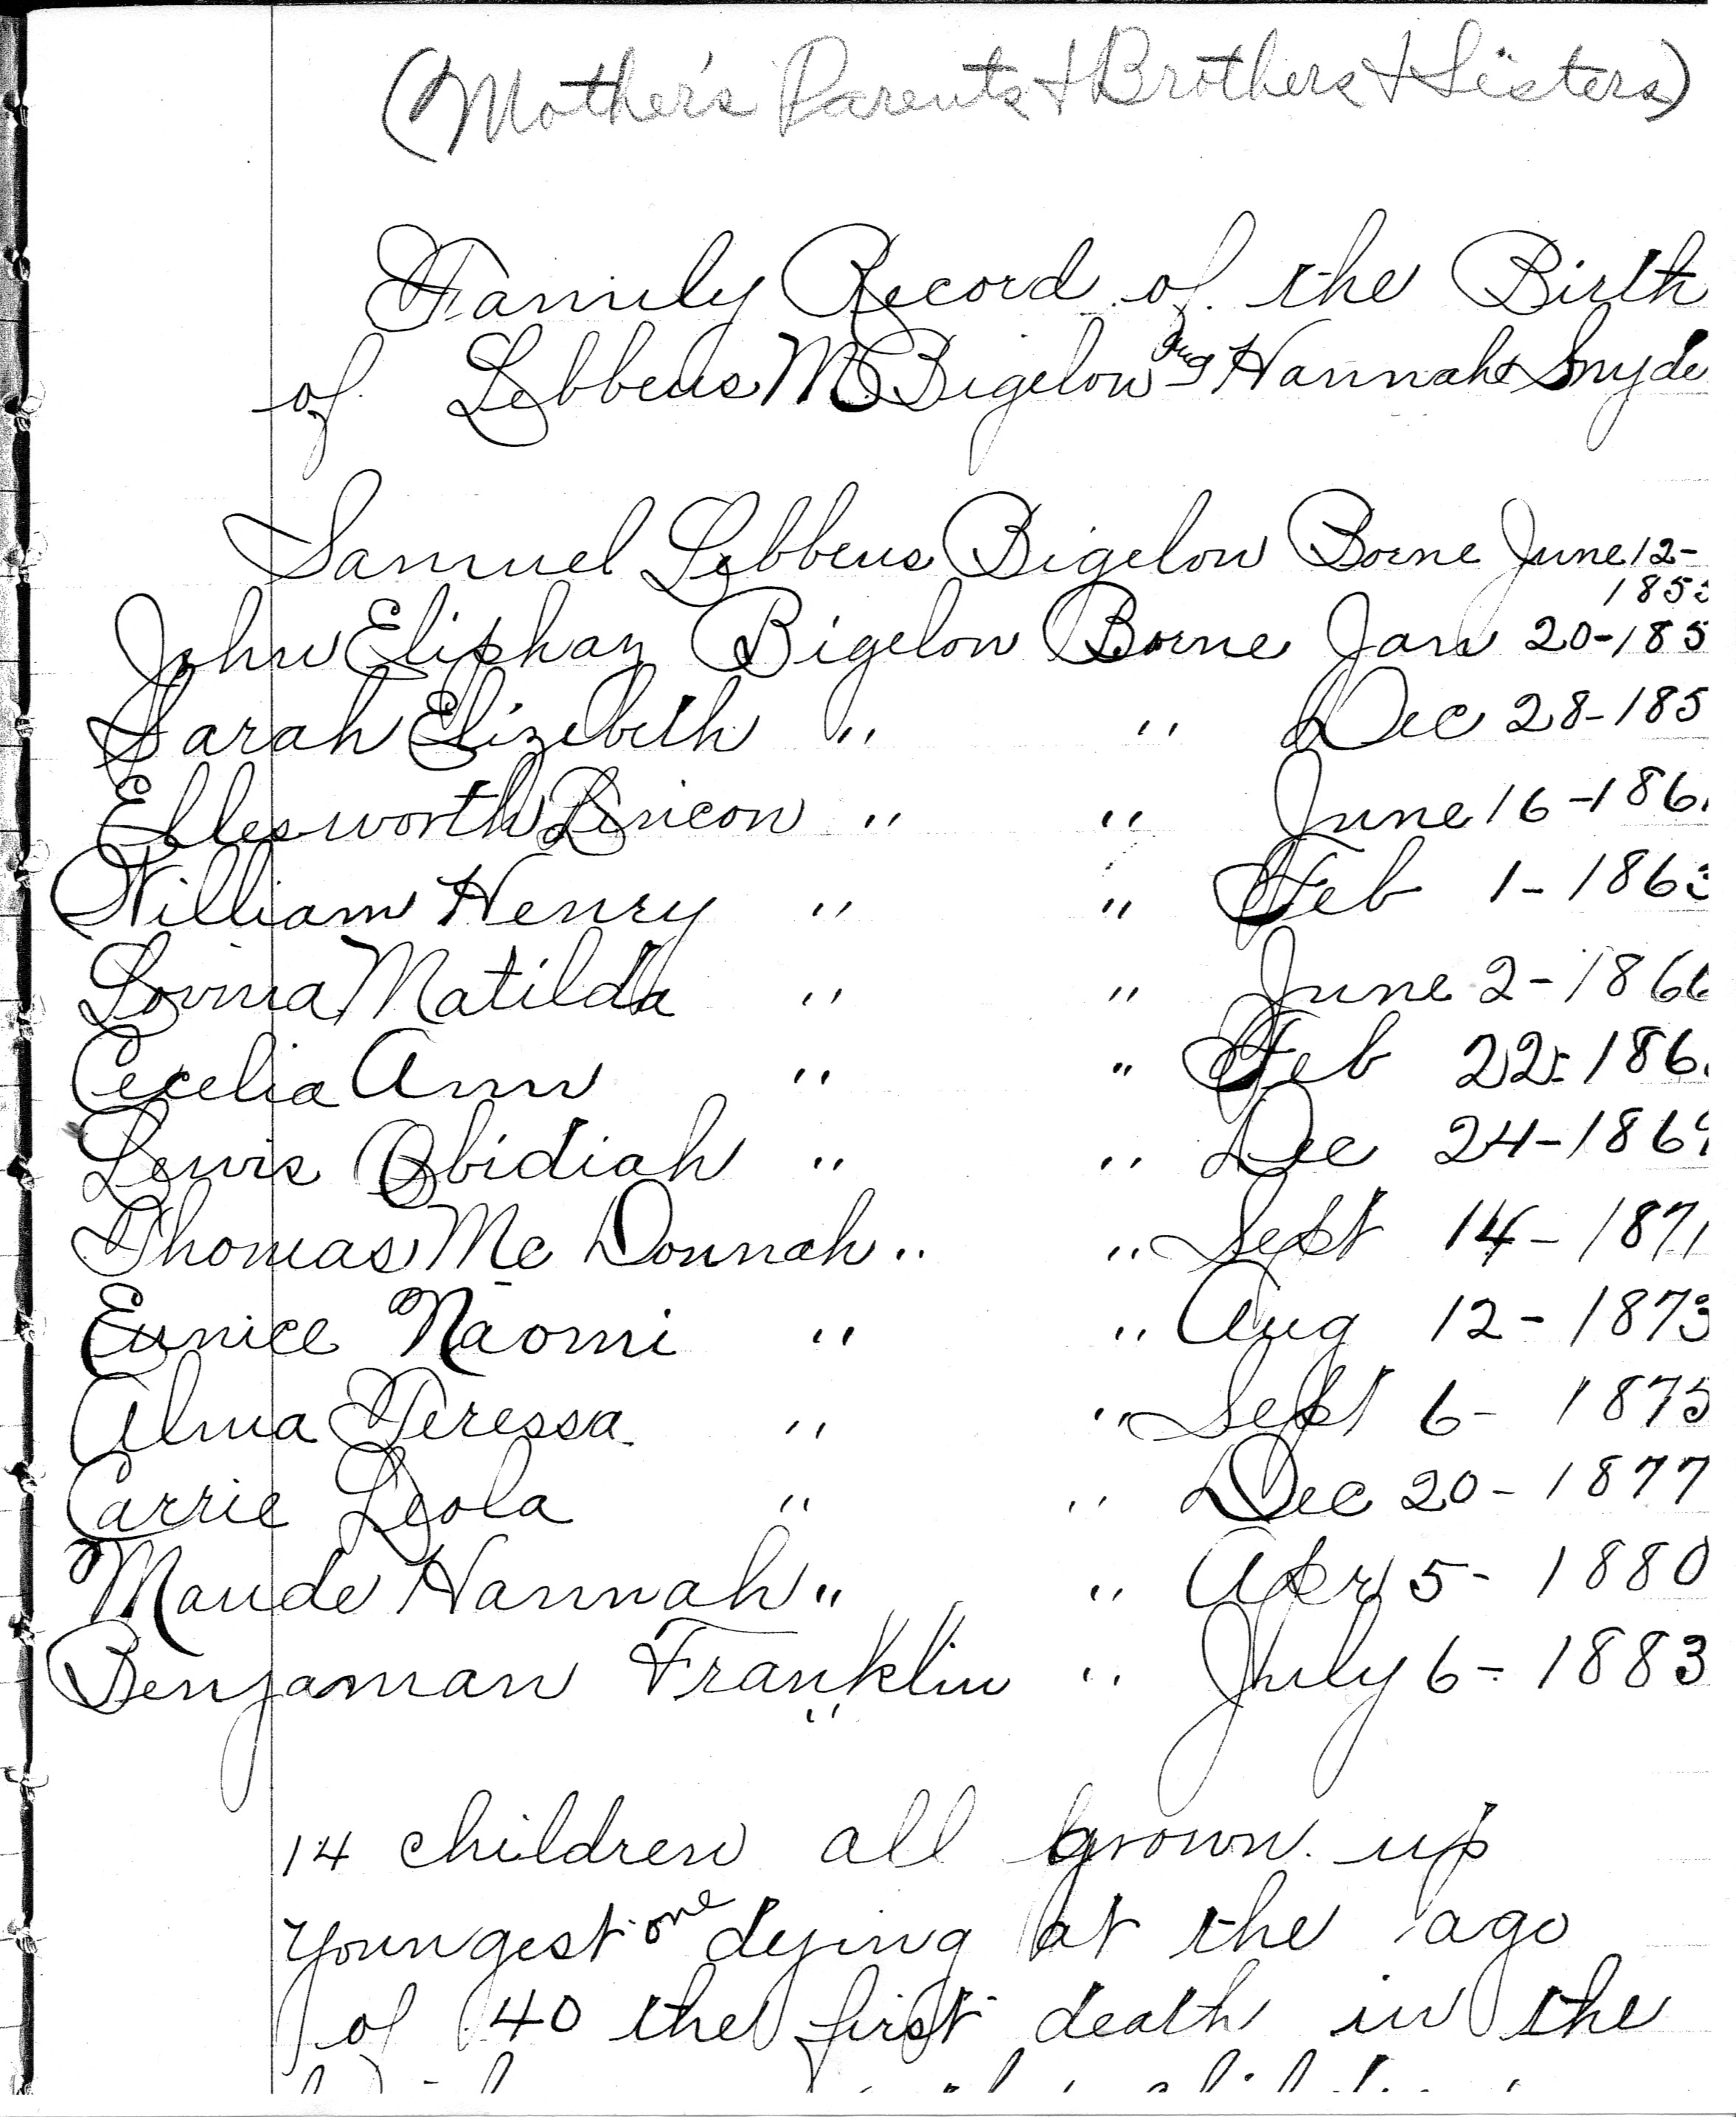 (Mother's Parents & Brothers & Sisters)
Family Record of the Birth
of Lebbeus M Bigelow and Hannah Snyde
Samuel Lebbeus Bigelow Borne June 12-
185
John Eliphaz Bigelow Borne Jan 20-185
Sarah Elizebeth " " Dec 28-185
Ellesworth Lincon " " June 16-186
William Henry " " Feb 1-1863
Lovina Matilda " " June 2-1866
Cecelia Ann " " Feb 22-186
Lewis Obidiah " " Dec 24-1869
Thomas Mc Donnah " " Sept 14-1871
Eunice Naomi " " Aug 12-1873
Alma Teressa " " Sept 6-1875
Carrie Leola " " Dec 20-1877
Maude Hannah " " Apr 5-1880
Benjaman Franklin " July 6-1883
"
14 children all grown up
youngest one dying at the age
of 40 the first death in the